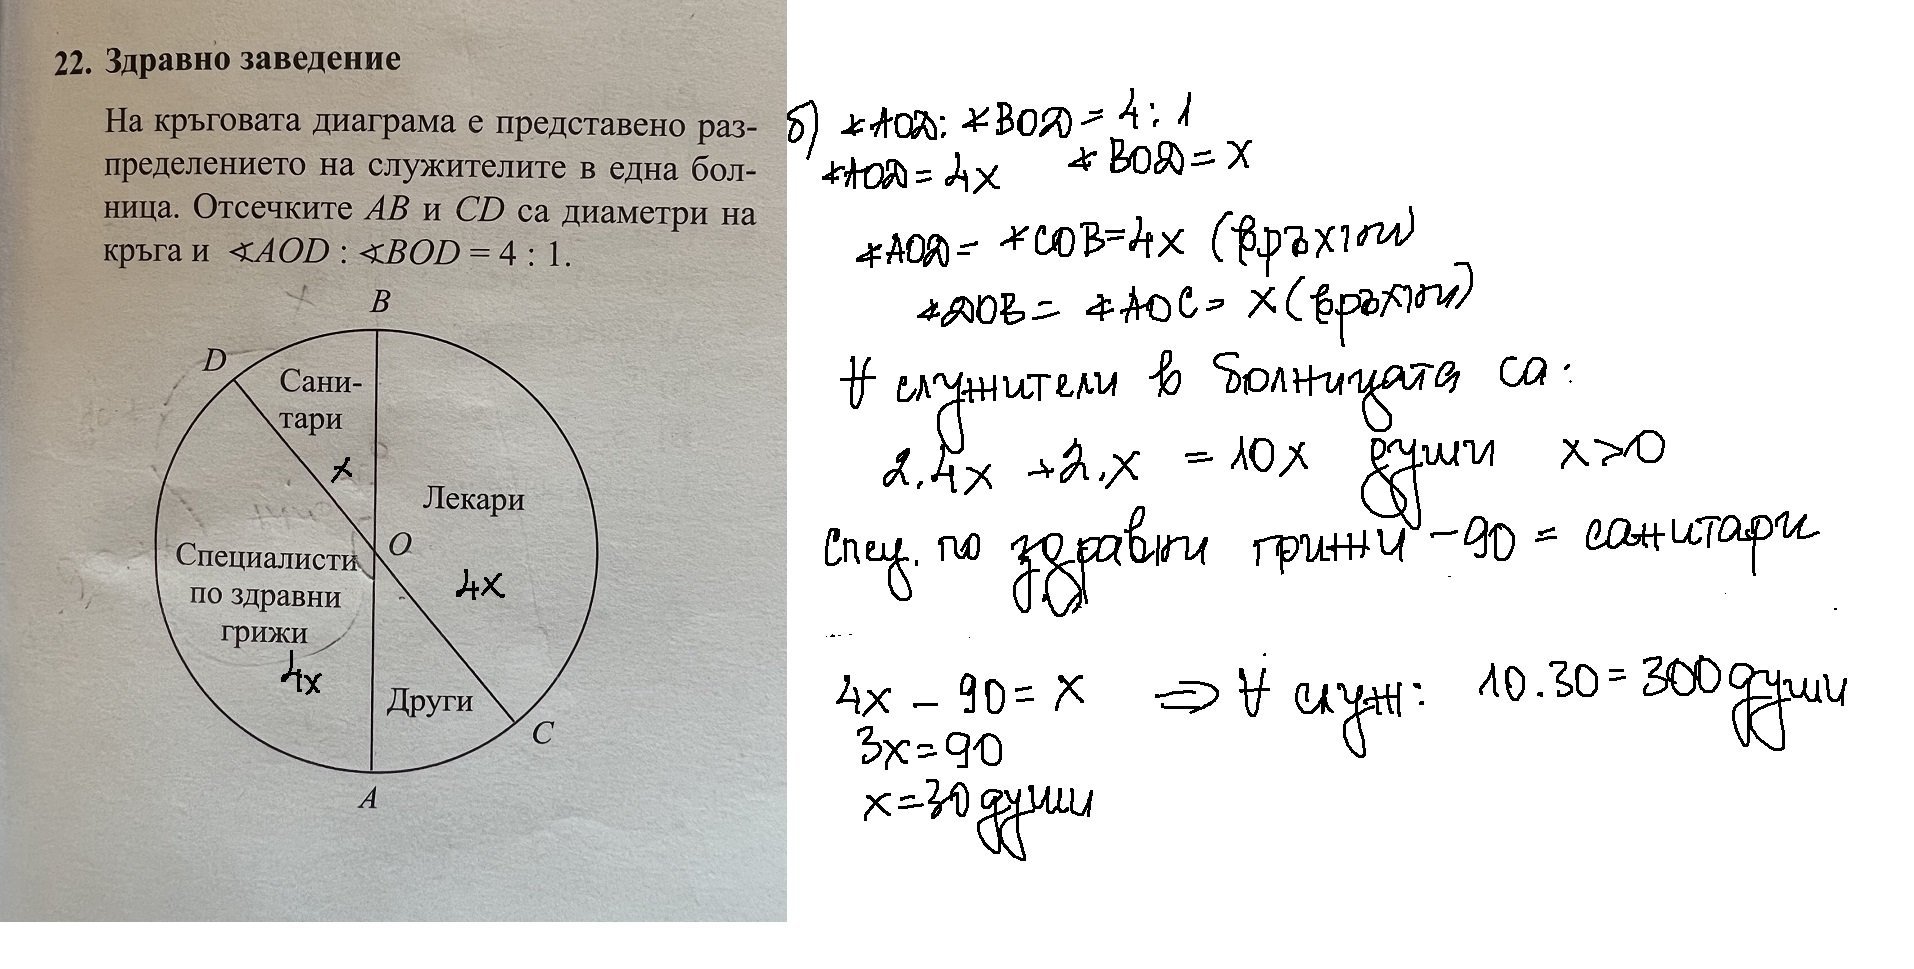 22. Здравно заведение
На кръговата диаграма е представено раз-
пределението на служителите в една бол-
ница. Отсечките AB и CD са диаметри на
кръга и ∢AOD : ∢BOD = 4 : 1.
B
D
Сани-
тари
x
Лекари
O
Специалисти
по здравни
грижи
4x
4x
Други
C
A
б) ∢AOD: ∢BOD = 4:1
∢AOD = 4x ∢BOD = x
∢AOD = ∢COB = 4x (връхни)
∢DOB = ∢AOC = x (връхни)
∀ служители в болницата са:
2.4x + 2.x = 10x души x>0
Спец. по здравни грижи - 90 = санитари
4x - 90 = x ⇒ ∀ служ: 10.30 = 300 души
3x = 90
x = 30 души